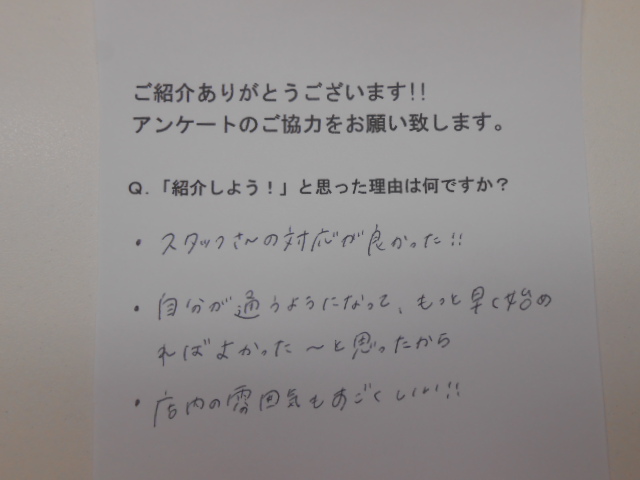 ご紹介ありがとうございます!!
アンケートのご協力をお願い致します。
Q.「紹介しよう！」と思った理由は何ですか？
・スタッフさんの対応が良かった!!
・自分が通うようになって、もっと早く始め
ればよかった〜と思ったから
・店内の雰囲気もすごくいい!!